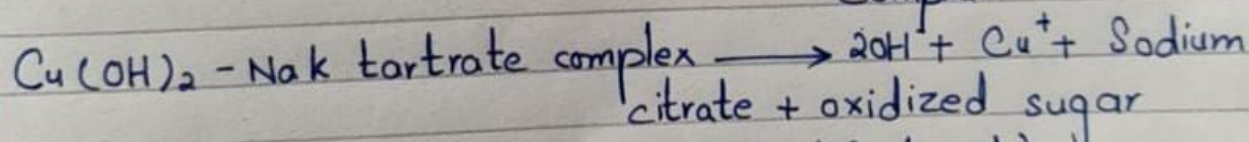 Cu(OH)₂ - Nak tartrate complex ⟶ 2OH⁺ + Cu⁺ + Sodium
citrate + oxidized sugar